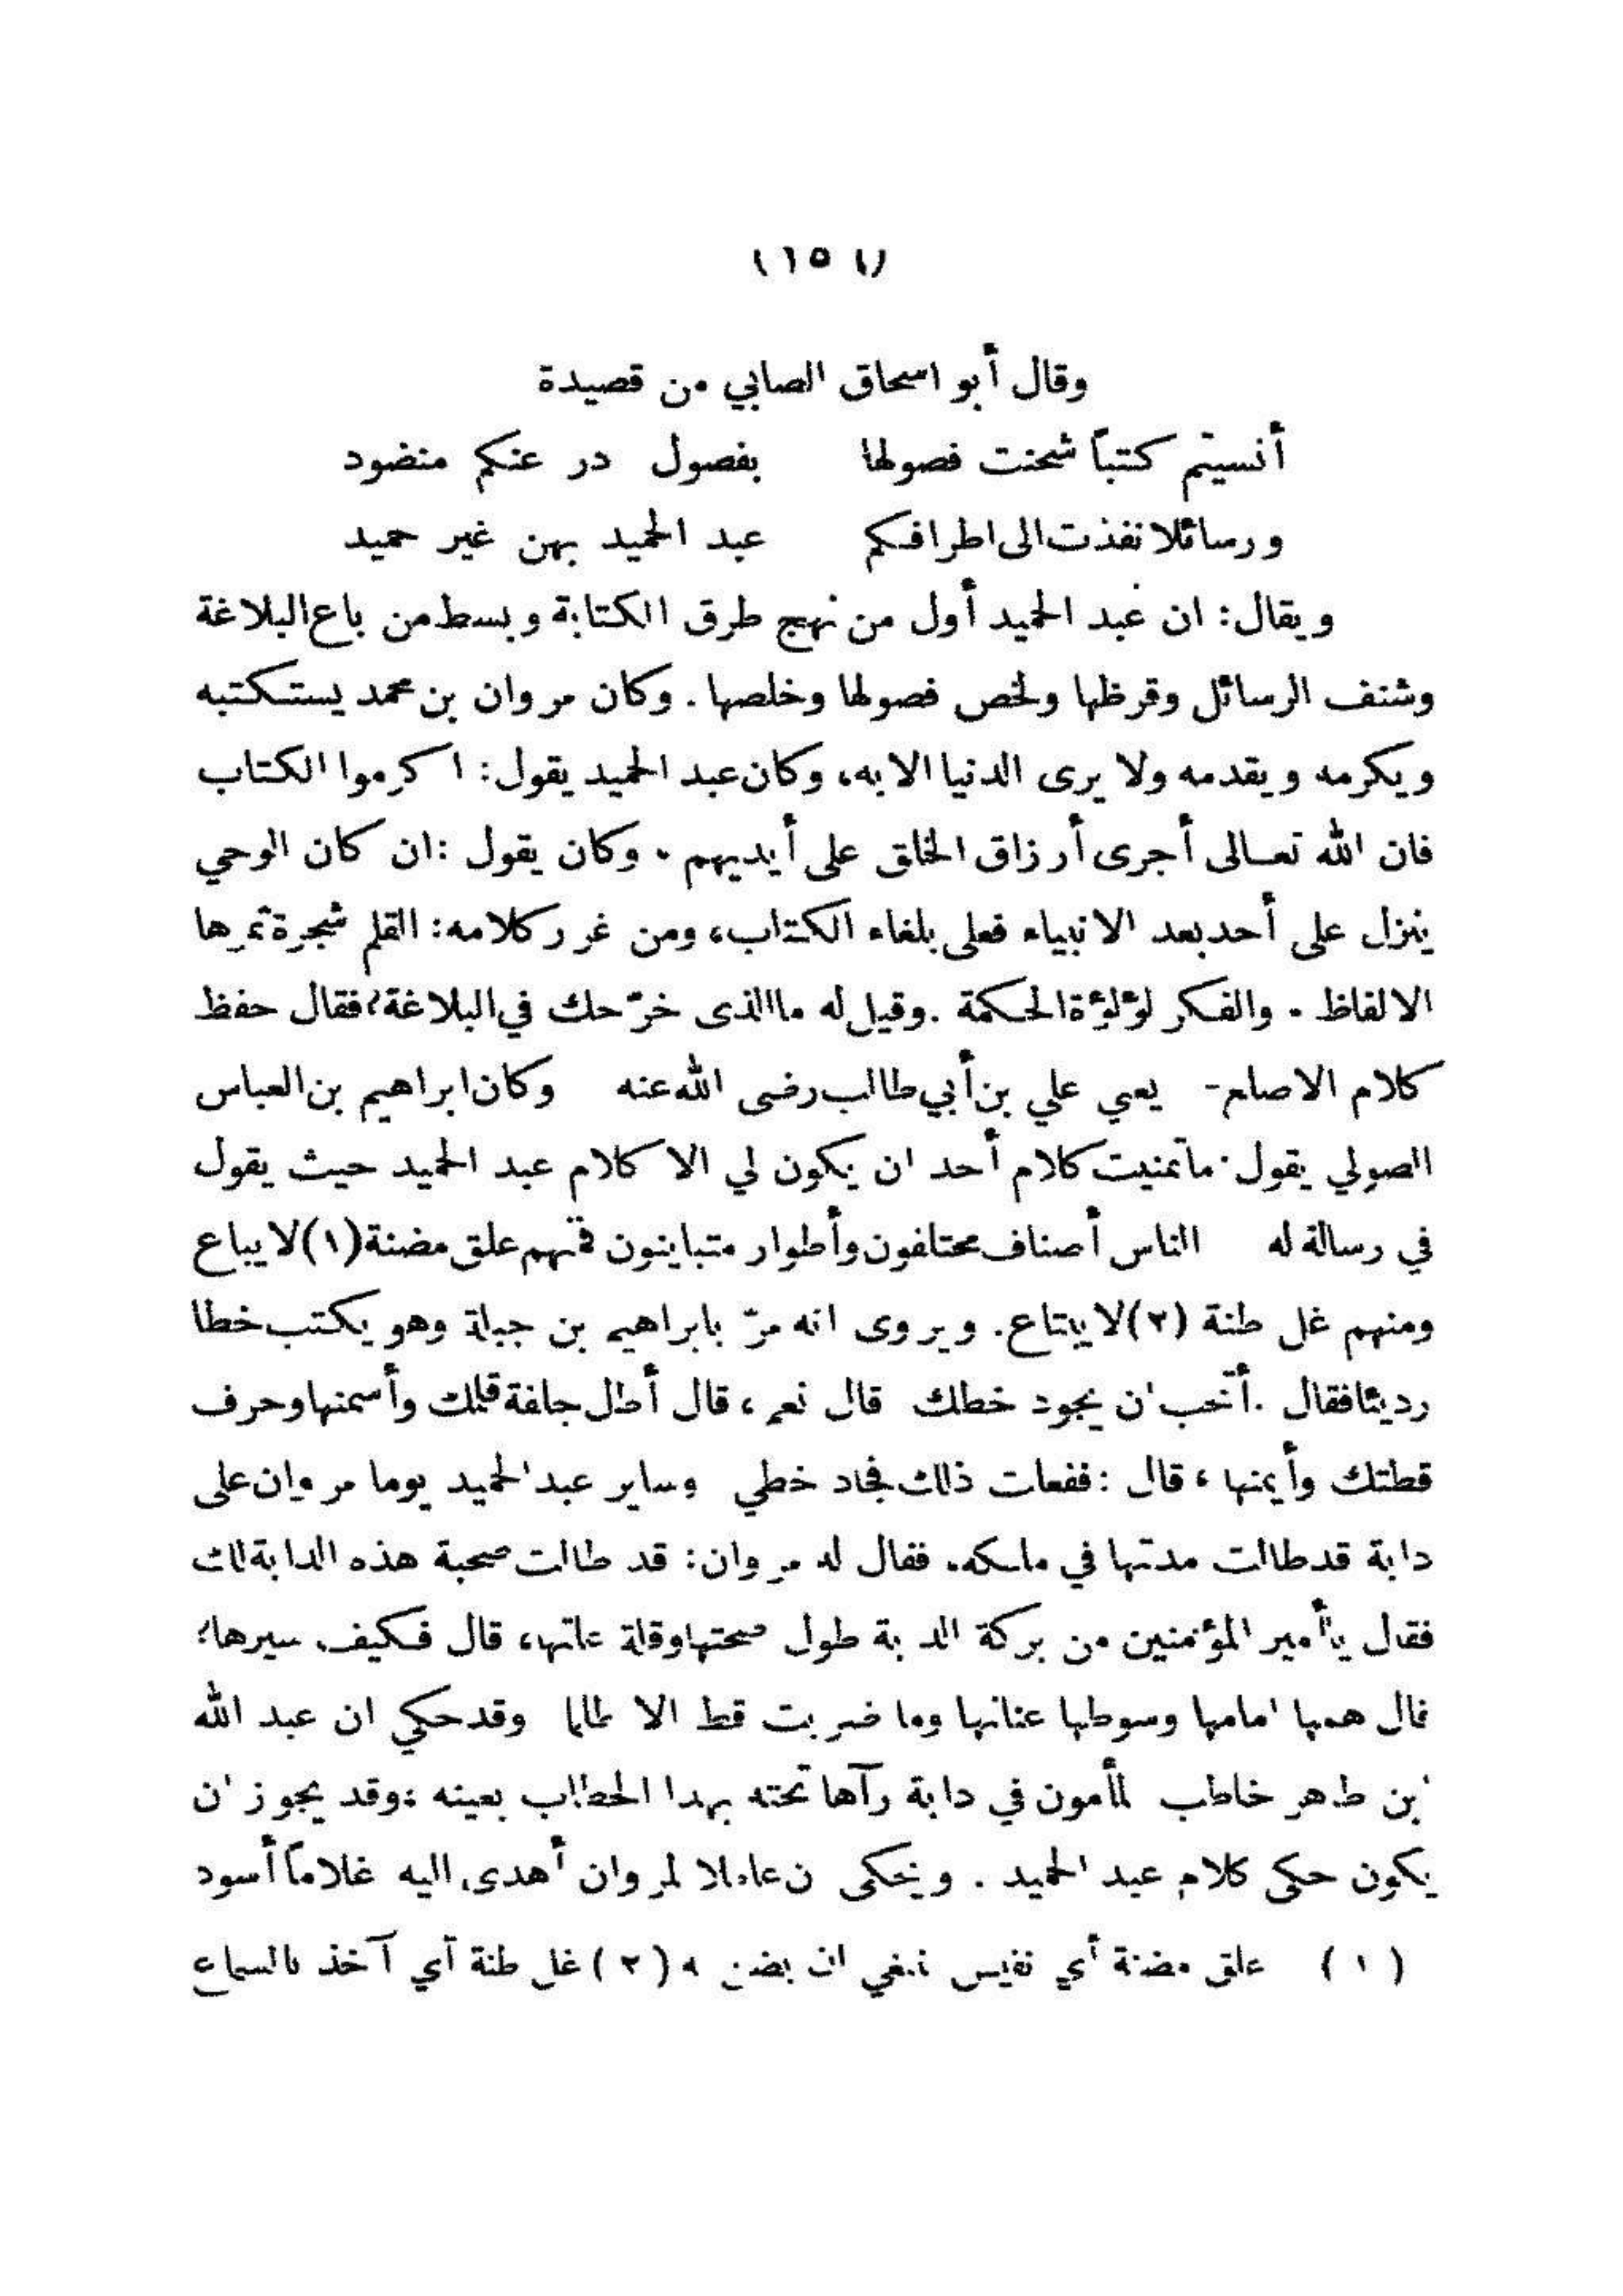 وقال أبو اسحاق الصابي من قصيدة
أنسيتم كتباً شحنت فصولها بفصول در عنكم منضود
ورسائلا نفذت الى اطرافكم عبد الحميد بهن غير حميد
ويقال: ان عبد الحميد أول من نهج طرق الكتابة وبسط من باع البلاغة
وشنف الرسائل وقرظها ولخص فصولها وخلصها. وكان مروان بن محمد يستكتبه
ويكرمه ويقدمه ولا يرى الدنيا الا به، وكان عبد الحميد يقول: اكرموا الكتاب
فان الله تعالى أجرى أرزاق الخلق على أيديهم. وكان يقول: ان كان الوحي
ينزل على أحد بعد الانبياء فعلى بلغاء الكتاب، ومن غرر كلامه: القلم شجرة ثمرها
الالفاظ. والفكر لؤلؤة الحكمة. وقيل له ما الذى خرّجك في البلاغة؟ فقال حفظ
كلام الاصلع- يعني علي بن أبي طالب رضى الله عنه وكان ابراهيم بن العباس
الصولي يقول. ما تمنيت كلام أحد ان يكون لي الا كلام عبد الحميد حيث يقول
في رسالة له الناس أصناف مختلفون وأطوار متباينون فمنهم علق مضنة (١) لا يباع
ومنهم غل طنة (٢) لا يبتاع. ويروى انه مرّ بابراهيم بن جبلة وهو يكتب خطا
رديئا فقال. أتحب أن يجود خطك قال نعم، قال أطل جلفة قلمك وأسمنها وحرف
قطتك وأيمنها، قال: ففعلت ذلك فجاد خطي وساير عبد الحميد يوما مروان على
دابة قد طالت مدتها في ملكه. فقال له مروان: قد طالت صحبة هذه الدابة لك
فقال يا أمير المؤمنين من بركة الدابة طول صحبتها وقلة علتها، قال فكيف سيرها؟
قال همها امامها وسوطها عنانها وما ضربت قط الا ظلما وقد حكي ان عبد الله
ابن طاهر خاطب المأمون في دابة رآها تحته بهذا الخطاب بعينه؛ وقد يجوز ان
يكون حكى كلام عبد الحميد. ويحكى ان عاملا لمروان أهدى اليه غلاماً أسود
(١) علق مضنة أي نفيس ينبغي ان يضن به (٢) غل طنة أي آخذ بالسماع